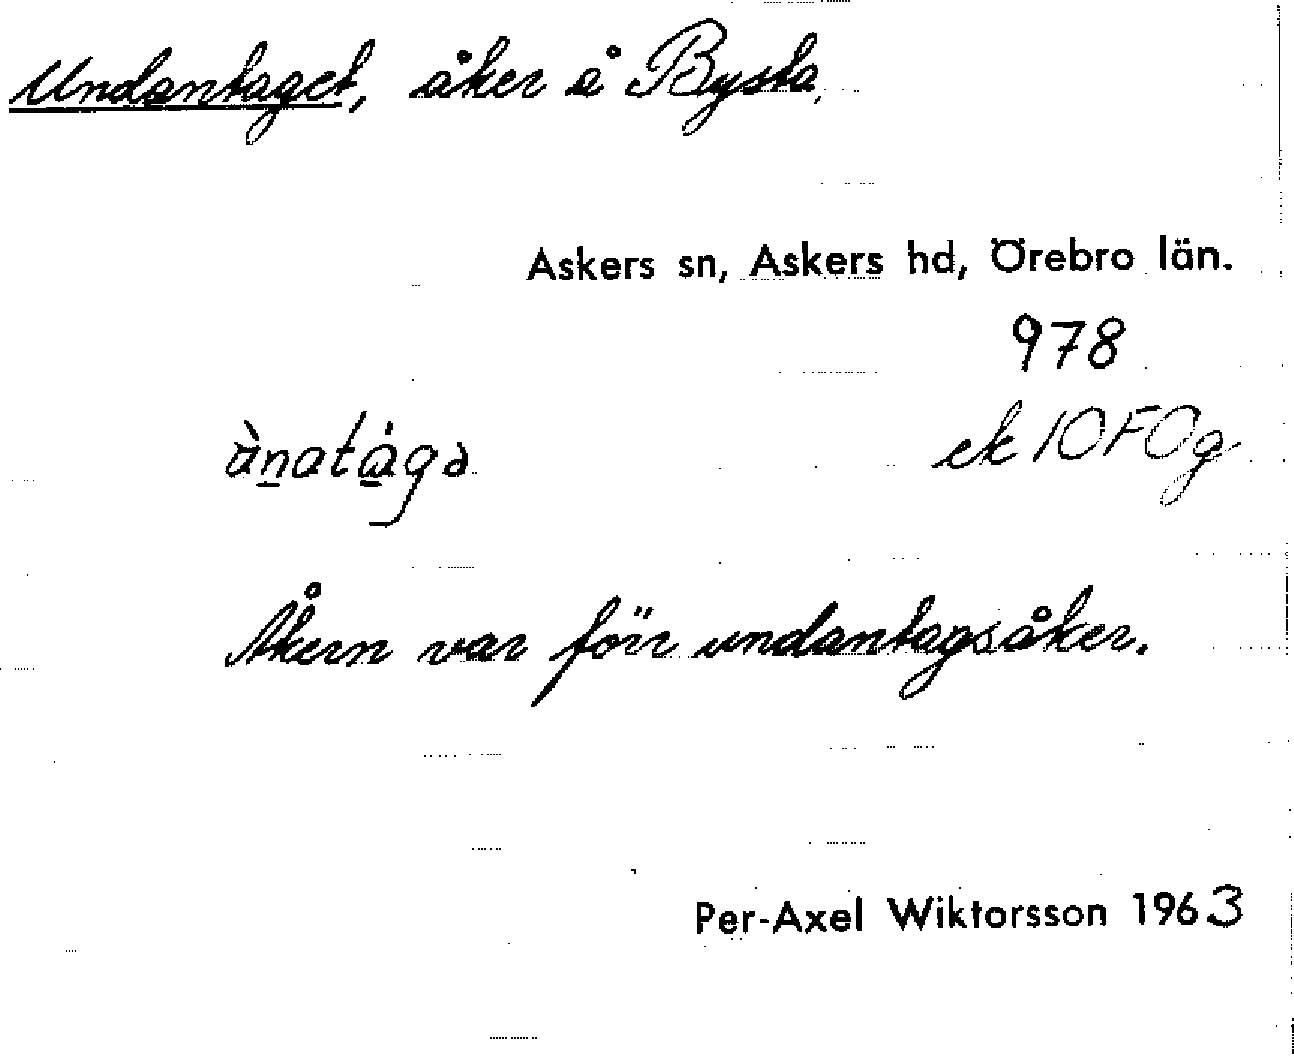 Undantaget, åker å Bysta
Askers sn, Askers hd, Örebro län.
978
ek 10F0g
Åkern var förr undantagsåker.
Per-Axel Wiktorsson 1963